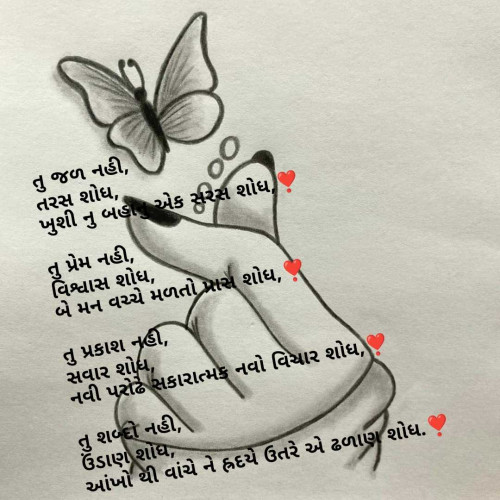 તુ જળ નહી,
તરસ શોધ,
ખુશી નુ બહાનુ એક સરસ શોધ,❣️
તુ પ્રેમ નહી,
વિશ્વાસ શોધ,
બે મન વચ્ચે મળતો પ્રાસ શોધ,❣️
તુ પ્રકાશ નહી,
સવાર શોધ,
નવી પરોઢે સકારાત્મક નવો વિચાર શોધ,❣️
તુ શબ્દો નહી,
ઉંડાણ શોધ,
આંખો થી વાંચે ને હ્રદયે ઉતરે એ ઢળાણ શોધ.❣️